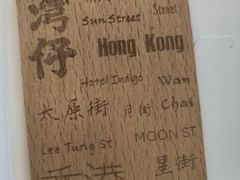 灣仔
Sun Street
Street
Hong Kong
Hotel Indigo
Wan Chai
太原街
月街
Lee Tung St
MOON ST
香港
星街